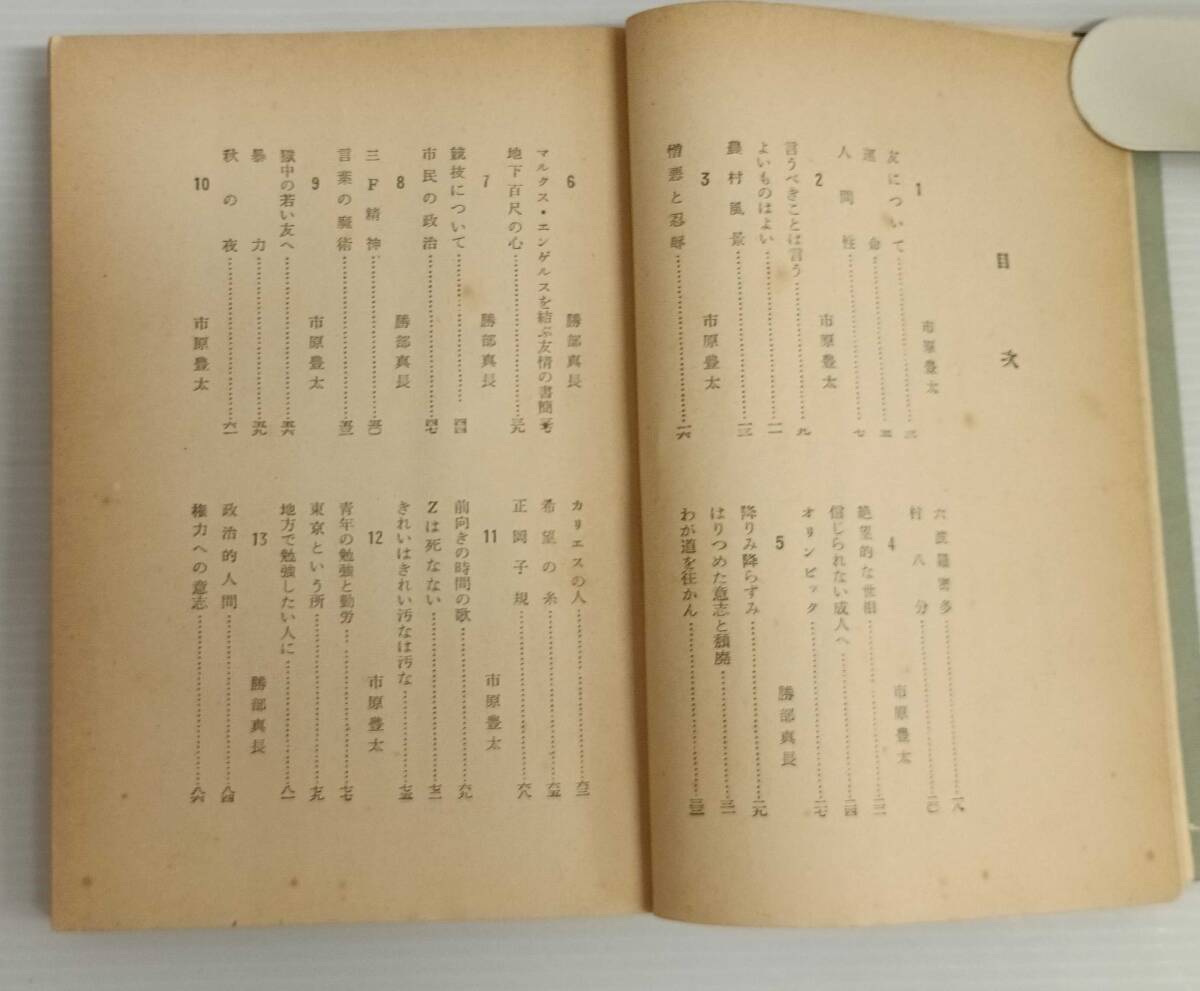 目次
1 市原豊太
友について
運命
人間性 七
2 市原豊太
言うべきことは言う 九
よいものはよい 一一
農村風景 一三
3 市原豊太
憎悪と忍辱 一六
六波羅蜜多 一八
村八分 二〇
4 市原豊太
絶望的な世相 二二
信じられない成人へ 二四
オリンピック 二七
5 勝部真長
降りみ降らずみ 二九
はりつめた意志と頽廃 三一
わが道を往かん 三三
6 勝部真長
マルクス・エンゲルスを結ぶ友情の書簡 三七
地下百尺の心 三九
7 勝部真長
競技について 四四
市民の政治 四七
8 勝部真長
三F精神 五〇
言葉の魔術 五三
9 市原豊太
獄中の若い友へ 五六
暴力 五九
秋の夜 六一
10 市原豊太
カリエスの人 六三
希望の糸 六五
正岡子規 六八
11 市原豊太
前向きの時間の歌 六九
Zは死なない 七二
きれいはきれい汚なは汚な 七五
12 市原豊太
青年の勉強と勤労 七七
東京という所 七九
地方で勉強したい人に 八一
13 勝部真長
政治的人間 八四
権力への意志 八六